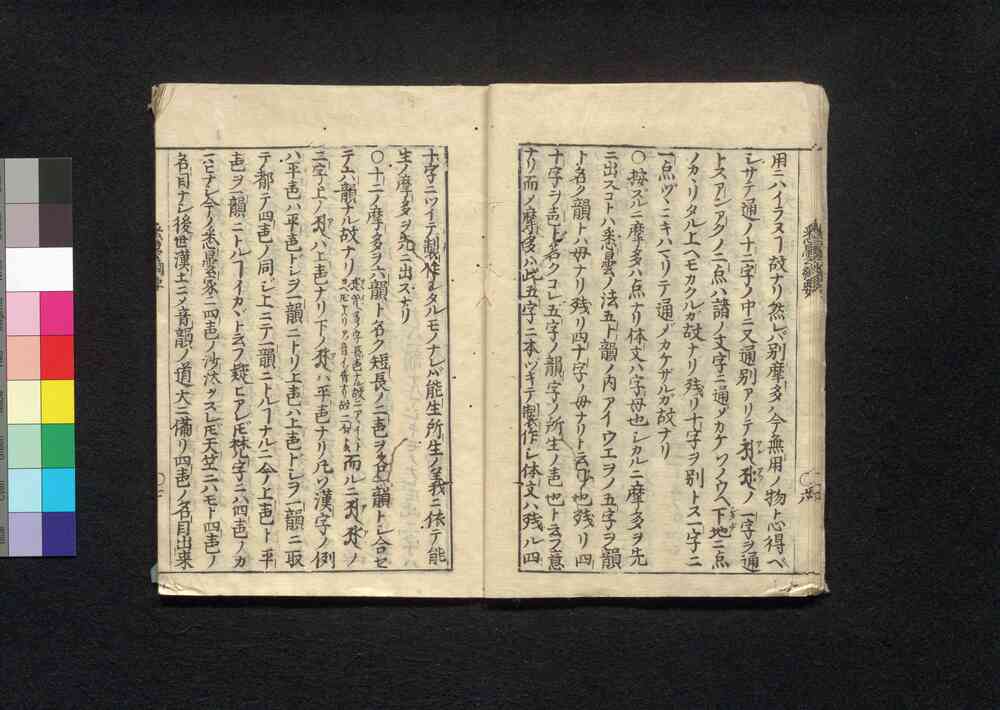 用ニハイラヌヿ故ナリ然レバ別摩多ハ今無用ノ物ト心得ベ
シサテ通ノ十二字ノ中ニ又通別アリテ ノ二字ヲ通
トスアンアクノ二点ハ諸ノ文字ニ通メカケツノウヘ下地ニ点
ノカヽリタル上ヘモカクルガ故ナリ残リ十字ヲ別トス一字ニ
一点ヅヽニキハマリテ通メカケザルガ故ナリ
〇按スルニ摩多ハ点ナリ体文ハ字母也シカルニ摩多ヲ先
ニ出スコトハ悉曇ノ法五十韻ノ内アイウエヲノ五字ヲ韻
ト名ク韻トハ母ナリ残リ四十字ノ母ナリト云フヿ也残リ四
十字ヲ声ト名クコレ五字ノ韻字ノ所生ノ声也ト云フ意
ナリ而ノ摩多ハ此五字ニ本ヅキテ製作シ体文ハ残ル四
十字ニツイテ製作シタルモノナレバ能生所生ノ義ニ依テ能
生ノ摩多ヲ先ニ出スナリ
〇十二ノ摩多ヲ六韻ト名ク短長ノ二声ヲ合一韻トシ合セ
テ六韻ナル故ナリ 而ルニ ノ
二字上ノ ハ上声ナリ下ノ ハ平声ナリ凡ソ漢字ノ例
ハ平声ハ平声ドシヲ一韻ニトリ上声ハ上声ドシヲ一韻ニ取
テ都テ四声ノ同シ上ニテ一韻ニトルヿナルニ今上声ト平
声ヲ一韻ニトルヿイカヾト云フ疑ヒアレ𪜈梵字ニハ四声ノカ
ハヒナシ今ノ悉曇家ニ四声ノ沙汰ヲスレ𪜈天竺ニハモト四声ノ
名目ナシ後世漢土ニノ音韻ノ道大ニ備リ四声ノ名目出来